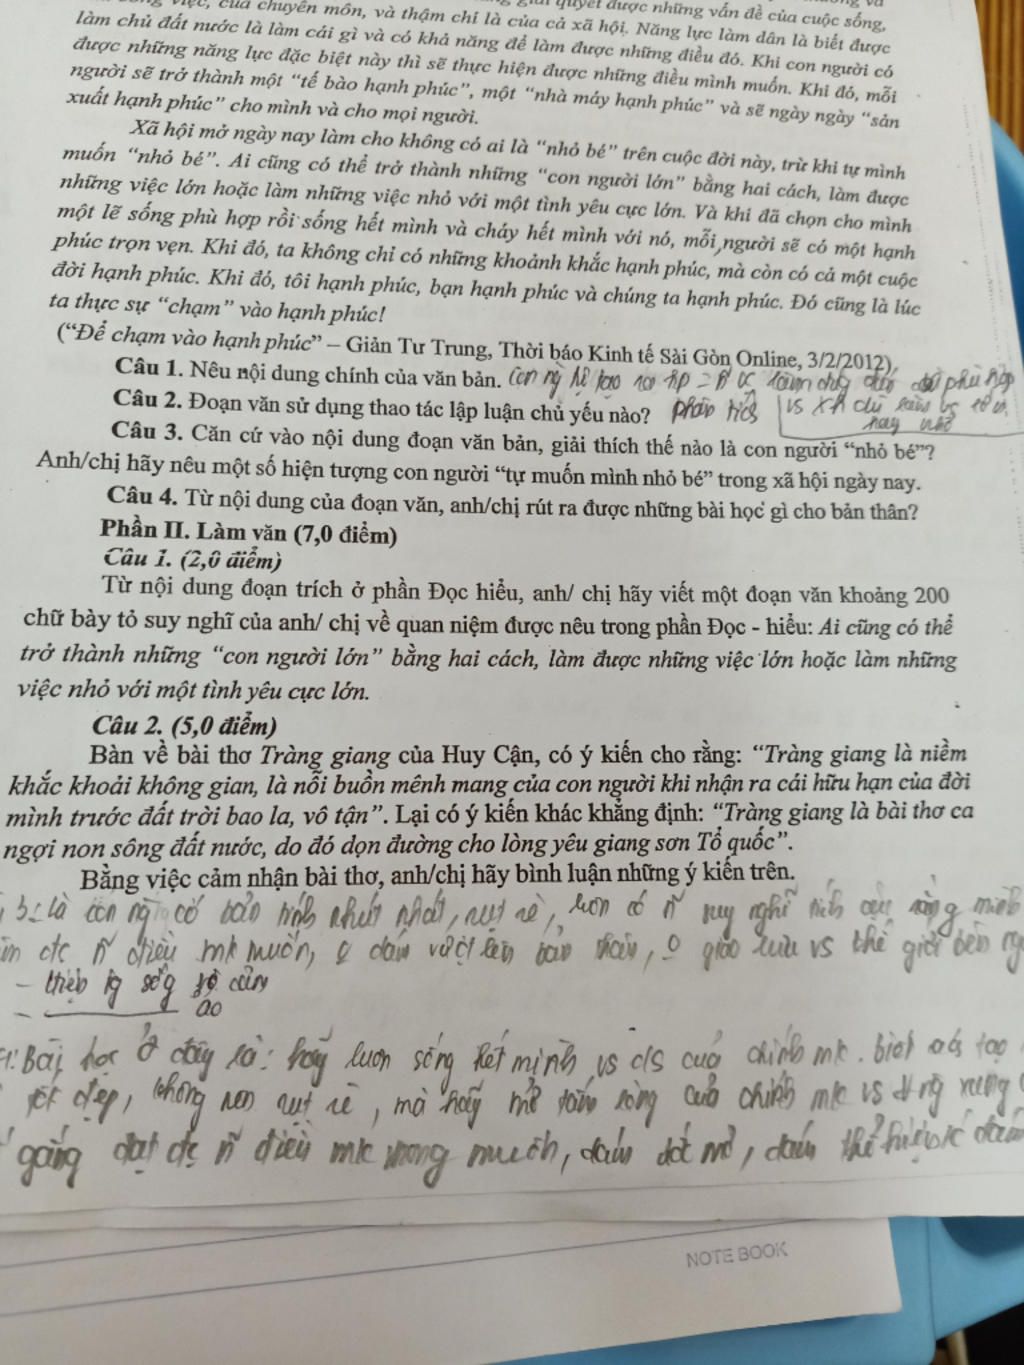 việc, của chuyên môn, và thậm chí là của cả xã hội. Năng lực làm dân là biết được
quyết được những vấn đề của cuộc sống,
làm chủ đất nước là làm cái gì và có khả năng để làm được những điều đó. Khi con người có
được những năng lực đặc biệt này thì sẽ thực hiện được những điều mình muốn. Khi đó, mỗi
người sẽ trở thành một “tế bào hạnh phúc”, một “nhà máy hạnh phúc” và sẽ ngày ngày “sản
xuất hạnh phúc” cho mình và cho mọi người.
Xã hội mở ngày nay làm cho không có ai là “nhỏ bé” trên cuộc đời này, trừ khi tự mình
muốn “nhỏ bé”. Ai cũng có thể trở thành những “con người lớn” bằng hai cách, làm được
những việc lớn hoặc làm những việc nhỏ với một tình yêu cực lớn. Và khi đã chọn cho mình
một lẽ sống phù hợp rồi sống hết mình và cháy hết mình với nó, mỗi người sẽ có một hạnh
phúc trọn vẹn. Khi đó, ta không chỉ có những khoảnh khắc hạnh phúc, mà còn có cả một cuộc
đời hạnh phúc. Khi đó, tôi hạnh phúc, bạn hạnh phúc và chúng ta hạnh phúc. Đó cũng là lúc
ta thực sự “chạm” vào hạnh phúc!
(“Để chạm vào hạnh phúc” – Giản Tư Trung, Thời báo Kinh tế Sài Gòn Online, 3/2/2012)
Câu 1. Nêu nội dung chính của văn bản.
Câu 2. Đoạn văn sử dụng thao tác lập luận chủ yếu nào? phân tích
Câu 3. Căn cứ vào nội dung đoạn văn bản, giải thích thế nào là con người “nhỏ bé”?
Anh/chị hãy nêu một số hiện tượng con người “tự muốn mình nhỏ bé” trong xã hội ngày nay.
Câu 4. Từ nội dung của đoạn văn, anh/chị rút ra được những bài học gì cho bản thân?
Phần II. Làm văn (7,0 điểm)
Câu 1. (2,0 điểm)
Từ nội dung đoạn trích ở phần Đọc hiểu, anh/ chị hãy viết một đoạn văn khoảng 200
chữ bày tỏ suy nghĩ của anh/ chị về quan niệm được nêu trong phần Đọc - hiểu: Ai cũng có thể
trở thành những “con người lớn” bằng hai cách, làm được những việc lớn hoặc làm những
việc nhỏ với một tình yêu cực lớn.
Câu 2. (5,0 điểm)
Bàn về bài thơ Tràng giang của Huy Cận, có ý kiến cho rằng: “Tràng giang là niềm
khắc khoải không gian, là nỗi buồn mênh mang của con người khi nhận ra cái hữu hạn của đời
mình trước đất trời bao la, vô tận”. Lại có ý kiến khác khẳng định: “Tràng giang là bài thơ ca
ngợi non sông đất nước, do đó dọn đường cho lòng yêu giang sơn Tổ quốc”.
Bằng việc cảm nhận bài thơ, anh/chị hãy bình luận những ý kiến trên.
3: là con ng có bản tính nhút nhát, rụt rè, luôn có suy nghĩ rằng mình
đc điều mk muốn, dám vượt lên bản thân, giao lưu vs thế giới bên
Bài học ở đây là: hãy luôn sống hết mình vs c/s của chính mk. biết tạo
tốt đẹp, không nên rụt rè, mà hãy mở tấm lòng của chính mk vs xung
gắng đạt đc điều mk mong muốn, dám ước mơ, dám thể hiện
NOTE BOOK